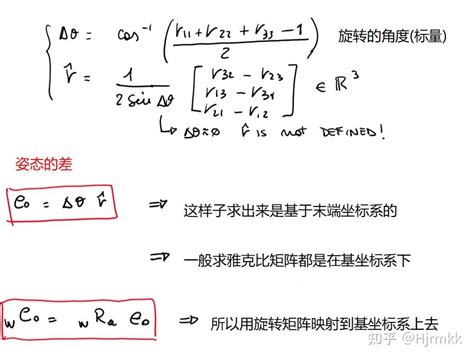 Δθ = cos⁻¹ ( (r₁₁ + r₂₂ + r₃₃ - 1) / 2 ) 旋转的角度(标量)
r̂ = 1 / (2 sin Δθ) [ r₃₂ - r₂₃
r₁₃ - r₃₁
r₂₁ - r₁₂ ] ∈ ℝ³
↳ Δθ≈0 r̂ is not DEFINED!
姿态的差
e₀ = Δθ r̂ ⇒ 这样子求出来是基于末端坐标系的
⇒ 一般求雅克比矩阵都是在基坐标系下
we₀ = wRₐ e₀ ⇒ 所以用旋转矩阵映射到基坐标系上去
知乎 @Hjrmkk